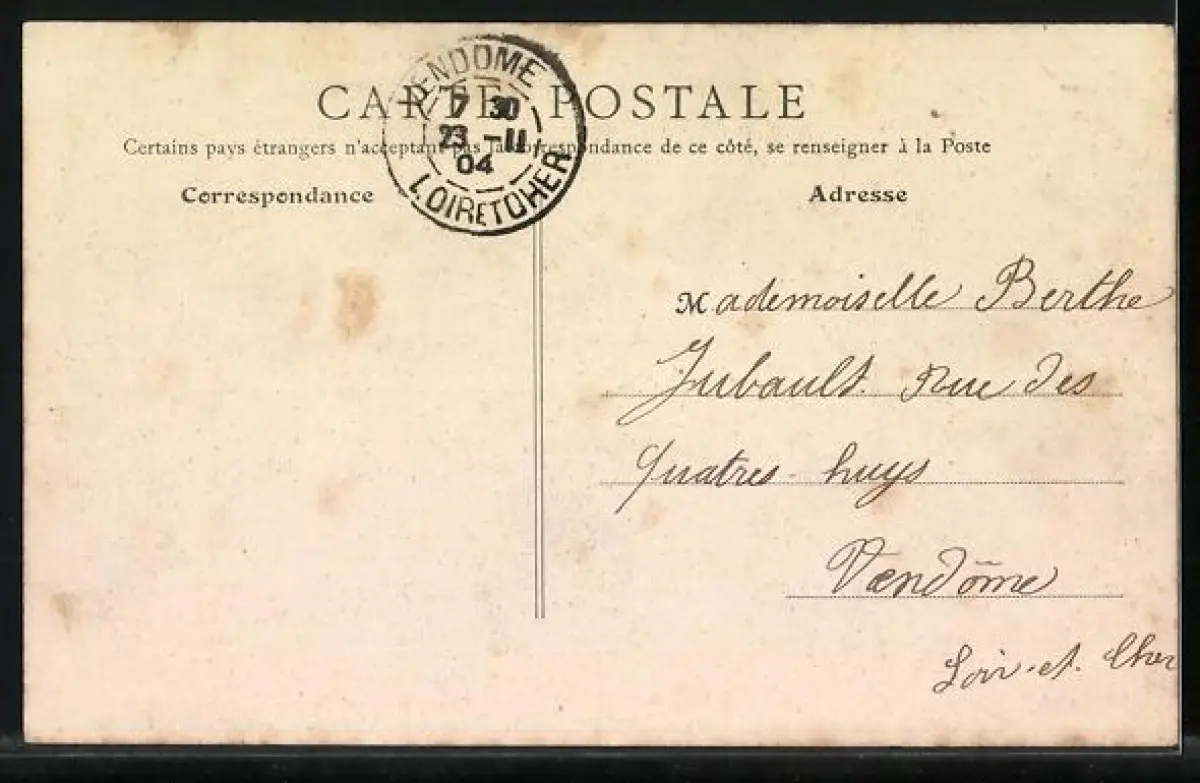 VENDOME
7 30
23 -11
04
LOIR ET CHER
CARTE POSTALE
Certains pays étrangers n'acceptant pas la correspondance de ce côté, se renseigner à la Poste
Correspondance
Adresse
Mademoiselle Berthe
Jubault. Rue des
quatres-huys
Vendôme
Loir-et-Cher